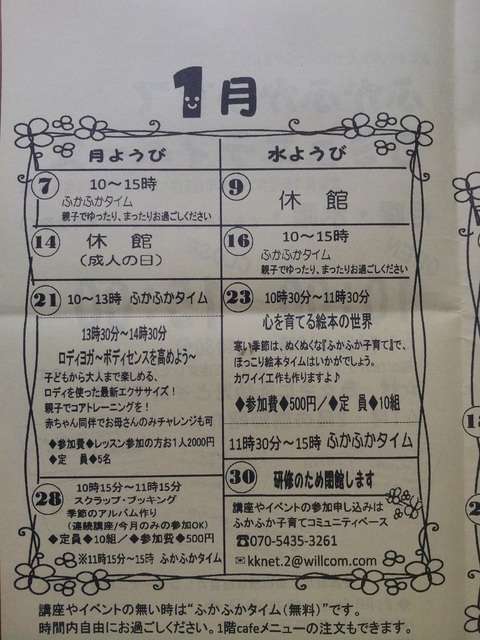 1月
月ようび
水ようび
7 10～15時
ふかふかタイム
親子でゆったり、まったりお過ごしください
9 休館
14 休館
(成人の日)
16 10～15時
ふかふかタイム
親子でゆったり、まったりお過ごしください
21 10～13時 ふかふかタイム
13時30分～14時30分
ロディヨガ～ボディセンスを高めよう～
子どもから大人まで楽しめる、
ロディを使った最新エクササイズ！
親子でコアトレーニングを！
赤ちゃん同伴でお母さんのみチャレンジも可
◆参加費◆レッスン参加の方お1人2000円
◆定 員◆5名
23 10時30分～11時30分
心を育てる絵本の世界
寒い季節は、ぬくぬくな『ふかふか子育て』で、
ほっこり絵本タイムはいかがでしょう。
カワイイ工作も作りますよ♪
◆参加費◆500円／◆定 員◆10組
11時30分～15時 ふかふかタイム
28 10時15分～11時15分
スクラップ・ブッキング
季節のアルバム作り
(連続講座/今月のみの参加OK)
◆定員◆10組／◆参加費◆500円
※11時15分～15時 ふかふかタイム
30 研修のため閉館します
講座やイベントの参加申し込みは
ふかふか子育てコミュニティベース
☎070-5435-3261
✉kknet.2@willcom.com
講座やイベントの無い時は“ふかふかタイム(無料)”です。
時間内自由にお過ごしください。1階cafeメニューの注文もできます。